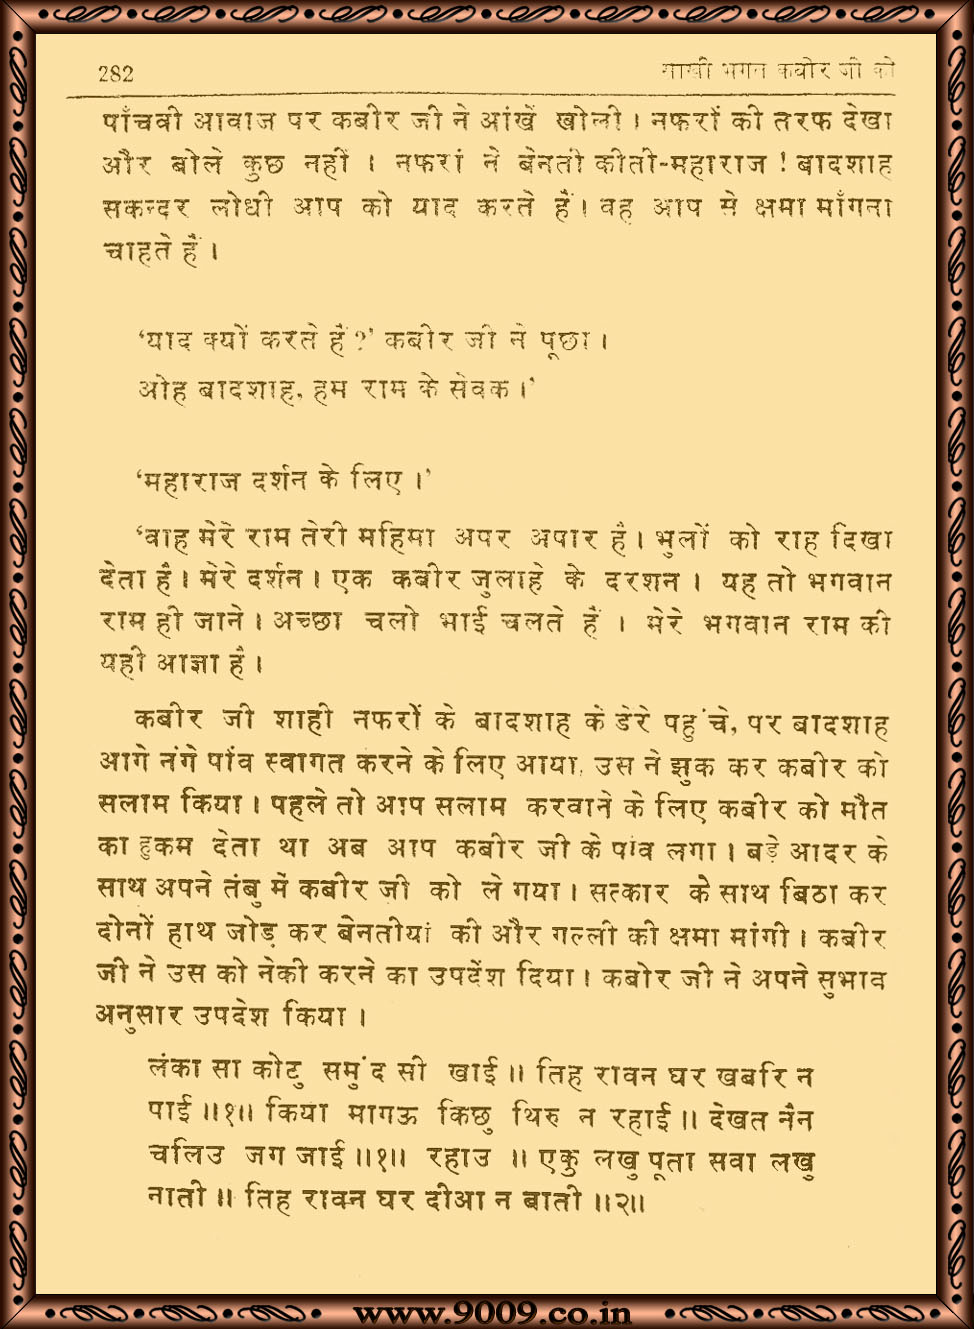 282 साखी भगत कबीर जी की
पाँचवी आवाज पर कबीर जी ने आंखें खोली। नफरों की तरफ देखा
और बोले कुछ नहीं । नफरां ने बेनती कीती-महाराज ! बादशाह
सकन्दर लोधी आप को याद करते हैं। वह आप से क्षमा माँगना
चाहते हैं ।
‘याद क्यों करते हैं ?’ कबीर जी ने पूछा ।
ओह बादशाह, हम राम के सेवक ।’
‘महाराज दर्शन के लिए ।’
‘वाह मेरे राम तेरी महिमा अपर अपार है। भुलों को राह दिखा
देता है। मेरे दर्शन। एक कबीर जुलाहे के दरशन । यह तो भगवान
राम ही जाने । अच्छा चलो भाई चलते हैं । मेरे भगवान राम की
यही आज्ञा है ।
कबीर जी शाही नफरों के बादशाह के डेरे पहुंचे, पर बादशाह
आगे नंगे पांव स्वागत करने के लिए आया, उस ने झुक कर कबीर को
सलाम किया । पहले तो आप सलाम करवाने के लिए कबीर को मौत
का हुकम देता था अब आप कबीर जी के पांव लगा । बड़े आदर के
साथ अपने तंबु में कबीर जी को ले गया । सत्कार के साथ बिठा कर
दोनों हाथ जोड़ कर बेनतीयां की और गल्ली की क्षमा मांगी । कबीर
जी ने उस को नेकी करने का उपदेंश दिया। कबोर जी ने अपने सुभाव
अनुसार उपदेश किया ।
लंका सा कोटु समुंद सी खाई ॥ तिह रावन घर खबरि न
पाई ॥१॥ किया मागऊ किछु थिरु न रहाई ॥ देखत नैन
चलिउ जग जाई ॥१॥ रहाउ ॥ एकु लखु पूता सवा लखु
नाती ॥ तिह रावन घर दीआ न बाती ॥२॥
www.9009.co.in